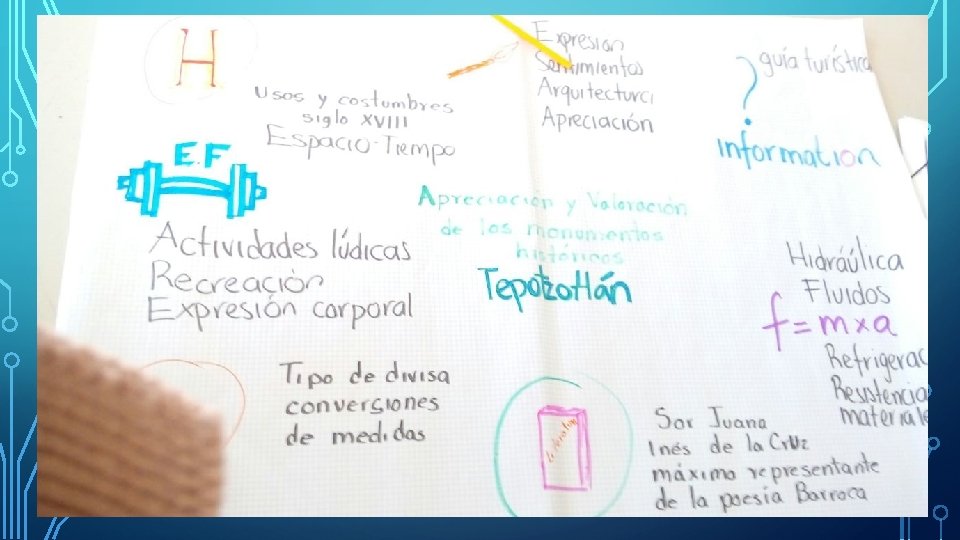 H
Usos y costumbres
siglo XVIII
Espacio-Tiempo
Expresión
Sentimientos
Arquitectura
Apreciación
guía turística
?
information
E.F
Actividades lúdicas
Recreación
Expresión corporal
Apreciación y Valoración
de los monumentos
históricos
Tepotzotlán
Hidráulica
Fluidos
f=mxa
Refrigerac
Resistencia
materiale
Tipo de divisa
conversiones
de medidas
Sor Juana
Inés de la Cruz
máximo representante
de la poesía Barroca